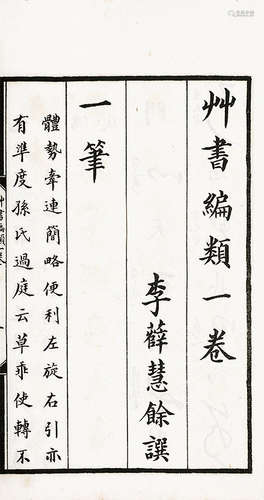 艸書編類一卷
李薛慧餘譔
一筆
體勢牽連簡略便利左旋右引亦
有準度孫氏過庭云草乖使轉不
艸書編類卷一